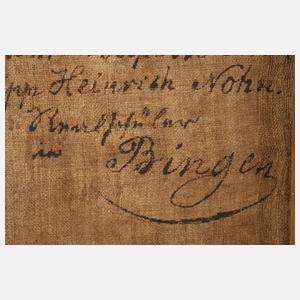 pp Heinrich Nohn.
Realschüler
in Bingen